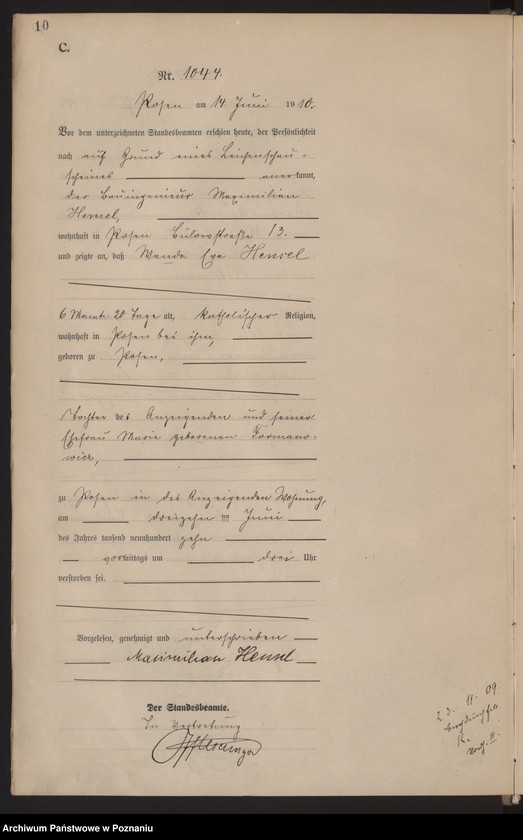 10
C.
Nr. 1044.
Posen am 14. Juni 1910.
Vor dem unterzeichneten Standesbeamten erschien heute, der Persönlichkeit
nach auf Grund eines Leichenschau-
scheines anerkannt,
der Bauingenieur Maximilian
Hensel,
wohnhaft in Posen Bülowstraße 13.
und zeigte an, daß Wanda Eva Hensel
6 Monate 20 Tage alt, katholischer Religion,
wohnhaft in Posen bei ihm,
geboren zu Posen,
Tochter des Anzeigenden und seiner
Ehefrau Marie geborenen Formano-
wicz,
zu Posen in des Anzeigenden Wohnung,
am dreizehnten Juni
des Jahres tausend neunhundert zehn
vormittags um drei Uhr
verstorben sei.
Vorgelesen, genehmigt und unterschrieben
Maximilian Hensel
Der Standesbeamte.
In Vertretung
23. 11. 09
Archiwum Państwowe w Poznaniu